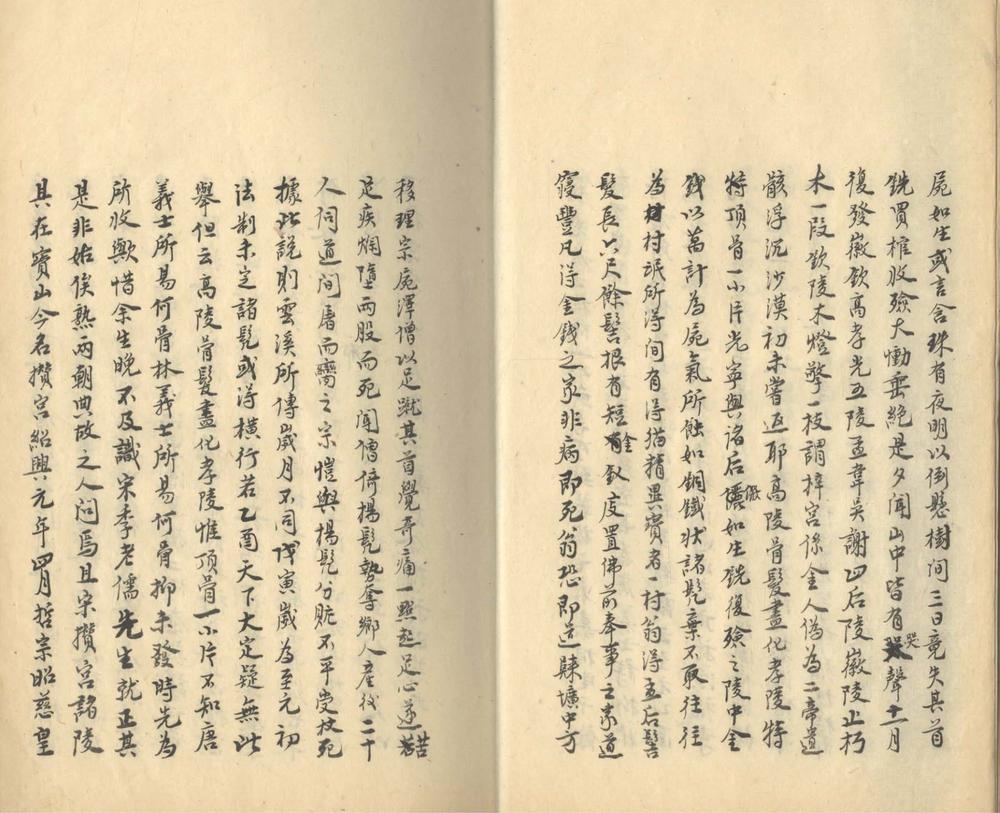 屍如生或言含珠有夜明以倒懸樹间三日竟失其首
銑買棺收殮大慟垂絕是夕聞山中皆有哭聲十一月
復發徽欽高孝光五陵孟韋吳謝四后陵徽陵止朽
木一段欽陵木燈擎一枝謂梓宮係金人偽為二帝遺
骸浮沉沙漠初未嘗返耶高陵骨髮盡化孝陵特
特頂骨一小片光寧與诸后儼如生銑復殮之陵中金
錢以萬計為屍氣所蝕如銅鐵状諸髡棄不取往往
為村村氓所得间有得猫精異寶者一村翁得孟后髻
髮長六尺餘髻根有短金釵庋置佛前奉事之家道
寖豐凡得金錢之家非病即死翁恐即送瘞壙中方
移理宗屍澤僧以足蹴其首覺奇痛一點起足心遂苦
足疾爛墮两股而死聞僧倚楊髡勢奪鄉人産後二十
人伺道间屠而臠之宗愷與楊髡分贓不平受杖死
據此說則雲溪所傳嵗月不同戊寅嵗為至元初
法制未定諸髡或得橫行若乙酉天下大定疑無此
舉但云高陵骨髮盡化孝陵惟頂骨一小片不知唐
義士所易何骨林義士所易何骨抑未發時先為
所收歟惜余生晚不及識宋季老儒先生就正其
是非姑俟熟两朝典故之人问焉且宋攢宮諸陵
具在寶山今名攢宮紹興元年四月哲宗昭慈皇